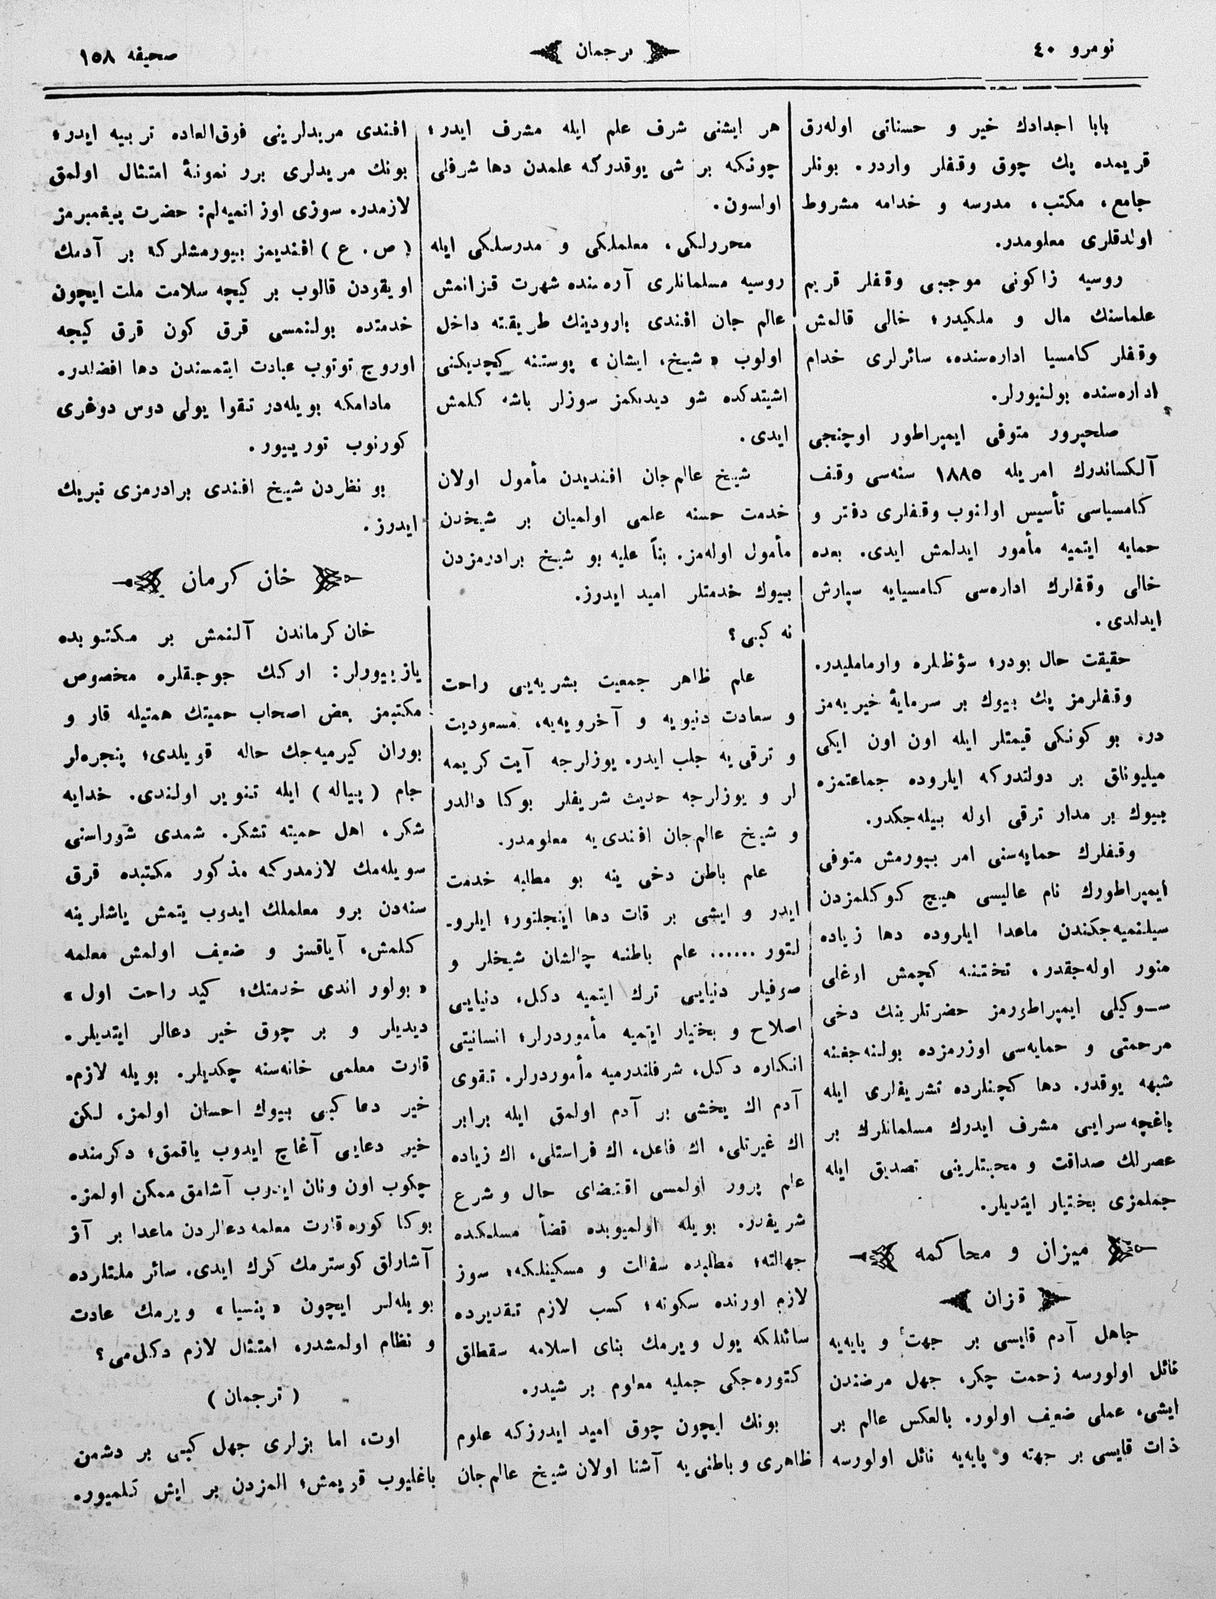 نومرو ٤٠
ترجمان
صحیفه ١٥٨
بابا اجدادك خیر و حسناتی اوله‌رق
قریمده پك چوق وقفلر واردر. بونلر
جامع، مکتب، مدرسه و خدامه مشروط
اولدقلری معلومدر.
روسیه زاکونی موجبی وقفلر قریم
علماسنك مال و ملکیدر؛ خالی قالمش
وقفلر کامسیا اداره‌سنده، سائرلری خدام
اداره‌سنده بولنیورلر.
صلحپرور متوفی ایمپراطور اوچنجی
آلکساندرك امریله ١٨٨٥ سنه‌سی وقف
کامسیاسی تأسیس اولنوب وقفلری دفتر و
حمایه ایتمیه مأمور ایدلمش ایدی. بعده
خالی وقفلرك اداره‌سی کامسیایه سپارش
ایدلدی.
حقیقت حال بودر؛ سؤظلره وارماملیدر.
وقفلرمز پك بیوك بر سرمایهٔ خیریه‌مز
در. بو کونکی قیمتلر ایله اون اون ایکی
میلیونلق بر دولتدرکه ایلروده جماعتمزه
بیوك بر مدار ترقی اوله بیله‌جکدر.
وقفلرك حمایه‌سنی امر بیورمش متوفی
ایمپراطورك نام عالیسی هیچ کوکلمزدن
سیلنمیه‌جکندن ماعدا ایلروده دها زیاده
منور اوله‌جقدر. تختنه کچمش اوغلی
سوکیلی ایمپراطورمز حضرتلرینك دخی
مرحمتی و حمایه‌سی اوزرمزده بولنه‌جغنه
شبهه یوقدر. دها کچنلرده تشریفلری ایله
باغچه سرایی مشرف ایدرك مسلمانلرك بر
عصرلك صداقت و محبتلرینی تصدیق ایله
جمله‌مزی بختیار ایتدیلر.
میزان و محاکمه
قزان
جاهل آدم قایسی بر جهت و پایه‌یه
نائل اولورسه زحمت چکر، جهل مرضندن
ایشی، عملی ضعیف اولور. بالعکس عالم بر
ذات قایسی بر جهته و پایه‌یه نائل اولورسه
هر ایشنی شرف علم ایله مشرف ایدر؛
چونکه بر شی یوقدرکه علمدن دها شرفلی
اولسون.
محررلکی، معلملکی و مدرسلکی ایله
روسیه مسلمانلری آره‌سنده شهرت قزانمش
عالم جان افندی بارودینك طریقته داخل
اولوب «شیخ، ایشان» پوستنه کچدیکنی
اشیتدکده شو دیدیکمز سوزلر باشه کلمش
ایدی.
شیخ عالم‌جان افندیدن مأمول اولان
خدمت حسنه علمی اولمیان بر شیخدن
مأمول اوله‌مز. بناً علیه بو شیخ برادرمزدن
بیوك خدمتلر امید ایدرز.
نه کبی؟
علم ظاهر جمعیت بشریه‌یی راحت
و سعادت دنیویه و آخرویه‌یه، مسعودیت
و ترقی‌یه جلب ایدر. یوزلرجه آیت کریمه
لر و یوزلرجه حدیث شریفلر بوکا دالدر
و شیخ عالم‌جان افندی‌یه معلومدر.
علم باطن دخی ینه بو مطالبه خدمت
ایدر و ایشی بر قات دها اینجلتور؛ ایلرو-
لتور...... علم باطنه چالشان شیخلر و
صوفیلر دنیایی ترك ایتمیه دکل، دنیایی
اصلاح و بختیار ایتمیه مأموردرلر؛ انسانیتی
انکاره دکل، شرفلندرمیه مأموردرلر. تقوی
آدم اك یخشی بر آدم اولمق ایله برابر
اك غیرتلی، اك فاعل، اك فراستلی، اك زیاده
علم پرور اولمسی اقتضای حال و شرع
شریفدر. بویله اولمیوبده قضأ مسلکده
جهالته؛ مطلبده سفالت و مسکینلکه؛ سوز
لازم اورنده سکوته؛ کسب لازم تقدیرده
سائللکه یول ویرمك بنای اسلامه سقطلق
کتوره‌جکی جمله‌یه معلوم بر شیدر.
بونك ایچون چوق امید ایدرزکه علوم
ظاهری و باطنی‌یه آشنا اولان شیخ عالم‌جان
افندی مریدلرینی فوق‌العاده تربیه ایدر؛
بونك مریدلری برر نمونهٔ امتثال اولمق
لازمدر. سوزی اوزانمیه‌لم: حضرت پیغمبرمز
(ص. ع) افندیمز بیورمشلرکه بر آدمك
اویقودن قالوب بر کیچه سلامت ملت ایچون
خدمتده بولنمسی قرق کون قرق کیجه
اوروج توتوب عبادت ایتمسندن دها افضلدر.
مادامکه بویله‌در تقوا یولی دوس دوغری
کورنوب تورییور.
بو نظردن شیخ افندی برادرمزی تبریك
ایدرز.
خان کرمان
خان کرماندن آلنمش بر مکتوبده
یازییورلر: ارکك جوجقلره مخصوص
مکتبمز بعض اصحاب حمیتك همتیله قار و
بوران کیرمیه‌جك حاله قویلدی؛ پنجره‌لر
جام (پیاله) ایله تنویر اولندی. خدایه
شکر، اهل حمیته تشکر. شمدی شوراسنی
سویله‌مك لازمدرکه مذکور مکتبده قرق
سنه‌دن برو معلملك ایدوب یتمش یاشلرینه
کلمش، آیاقسز و ضعیف اولمش معلمه
«بولور اندی خدمتك؛ کید راحت اول»
دیدیلر و بر چوق خیر دعالر ایتدیلر.
قارت معلمی خانه‌سنه چکدیلر. بویله لازم.
خیر دعا کبی بیوك احسان اولمز. لکن
خیر دعایی آغاچ ایدوب یاقمق؛ دکرمنده
چکوب اون ونان ایدوب آشامق ممکن اولمز.
بوکا کوره قارت معلمه دعالردن ماعدا بر آز
آشارلق کوسترمك کرك ایدی. سائر ملتلرده
بویله‌لر ایچون «پنسیا» ویرمك عادت
و نظام اولمشدر. امتثال لازم دکل‌می؟
(ترجمان)
اوت، اما بزلری جهل کبی بر دشمن
باغلیوب قریمش؛ المزدن بر ایش کلمیور.